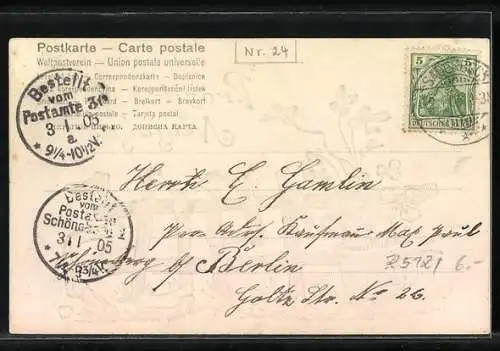 Postkarte — Carte postale
Nr. 24
Weltpostverein — Union postale universelle
Correspondenzkarte — Dopisnice
Korespondenční lístek
Brefkort — Brevkort
Tarjeta postal
ДОПИСНА КАРТА
5
DEUTSCHES REICH
Bestellt
vom
Postamte 30
3 1 05
a
* 9¼-10½V.
Bestellt
vom
Postamte
Schöneberg 2
31 1 05
*
Herrn E. Gamlin
per Adr. Kaufmann Max Paul
Schöneberg b/ Berlin
Goltz Str. No 26.
R5121 6.-